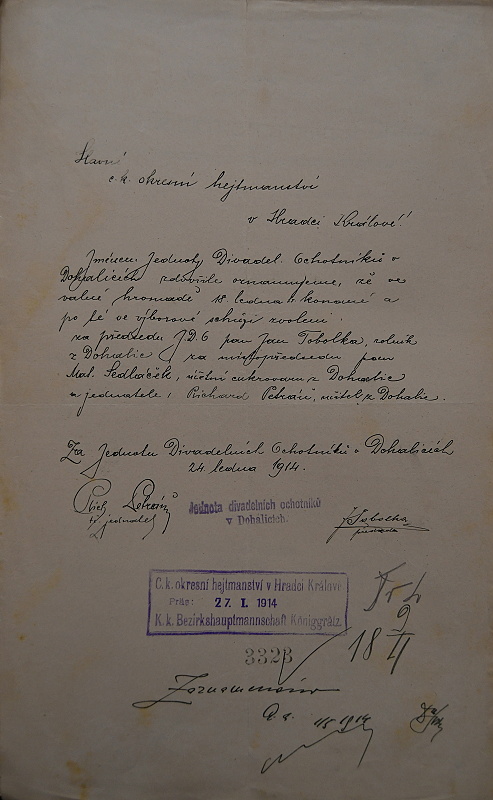 Slavné
c. k. okresní hejtmanství
v Hradci Králové!
Jménem Jednoty Divadel. Ochotníků v
Dohalicích zdvořile oznamujeme, že ve
valné hromadě 18 ledna t. r. konané a
po té ve výborové schůzi zvoleni:
za předsedu J.D.O pan Jan Tobolka, rolník
z Dohalic, za místopředsedu pan
Mat. Sedláček, účetní cukrovaru z Dohalic
a jednatele, Richard Petráň, učitel z Dohalic.
Za Jednotu Divadelních Ochotníků v Dohalicích
24. ledna 1914.
Rich. Petráň
t. č. jednatel
Jednota divadelních ochotníků
v Dohalicích.
J Tobolka
předseda
C. k. okresní hejtmanství v Hradci Králové
Präs: 27. I. 1914
K. k. Bezirkshauptmannschaft Königgrätz.
3323
9
18 II
1914